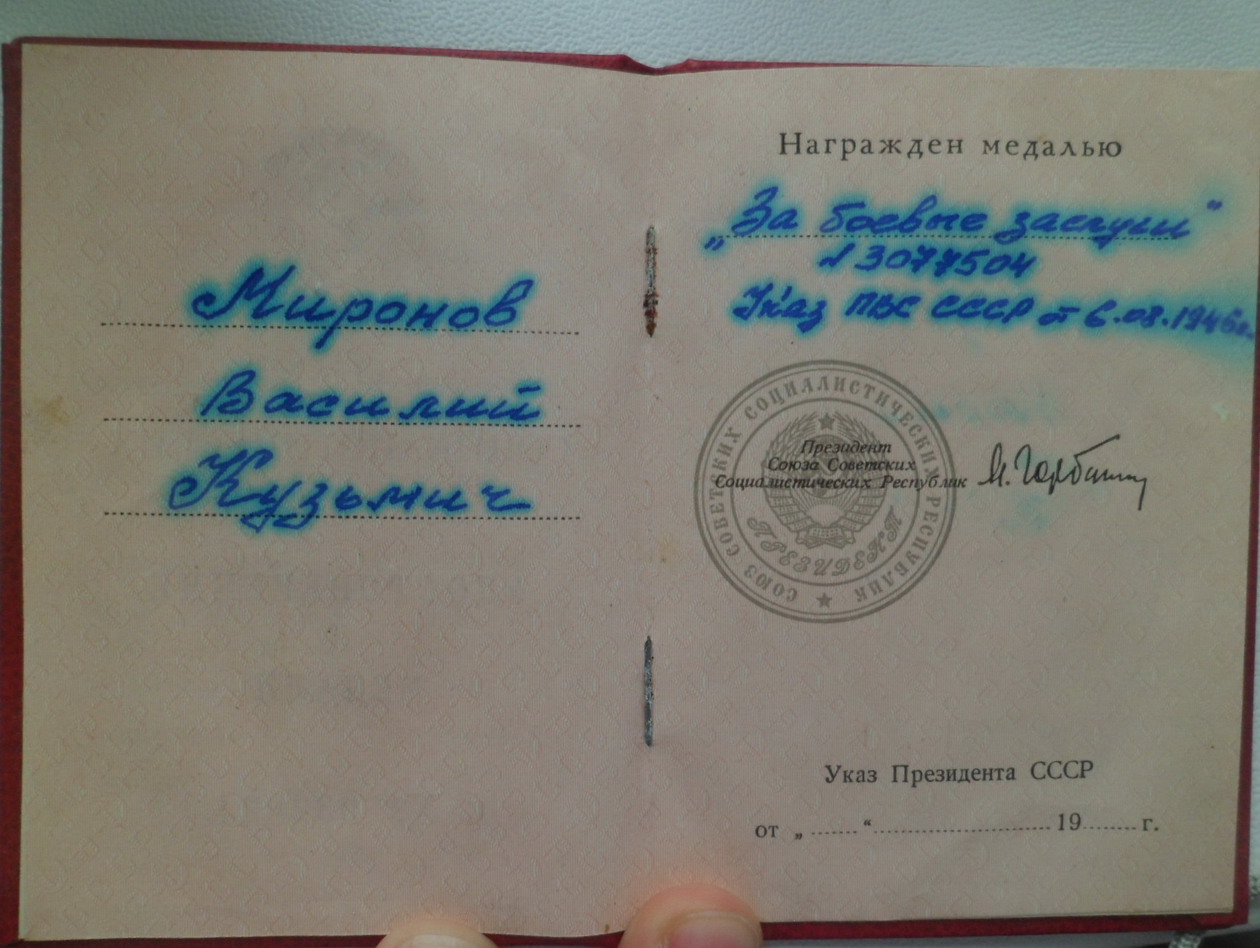 Миронов
Василий
Кузьмич
Награжден медалью
„За боевые заслуги"
№ 3077504
Указ ПВС СССР от 6.08.1946г.
СОЮЗ СОВЕТСКИХ СОЦИАЛИСТИЧЕСКИХ РЕСПУБЛИК
Президент
Союза Советских
Социалистических Республик
ПРЕЗИДЕНТ
Указ Президента СССР
от „ ....... “ .......................... 19........ г.